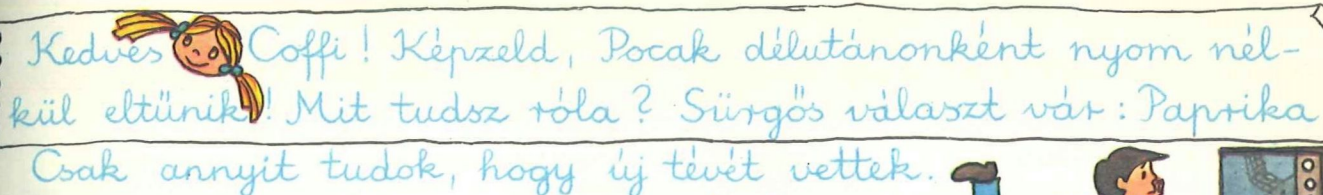 Kedves Coffi! Képzeld, Pocak délutánonként nyom nél-
kül eltűnik! Mit tudsz róla? Sürgős választ vár: Paprika
Csak annyit tudok, hogy új tévét vettek.